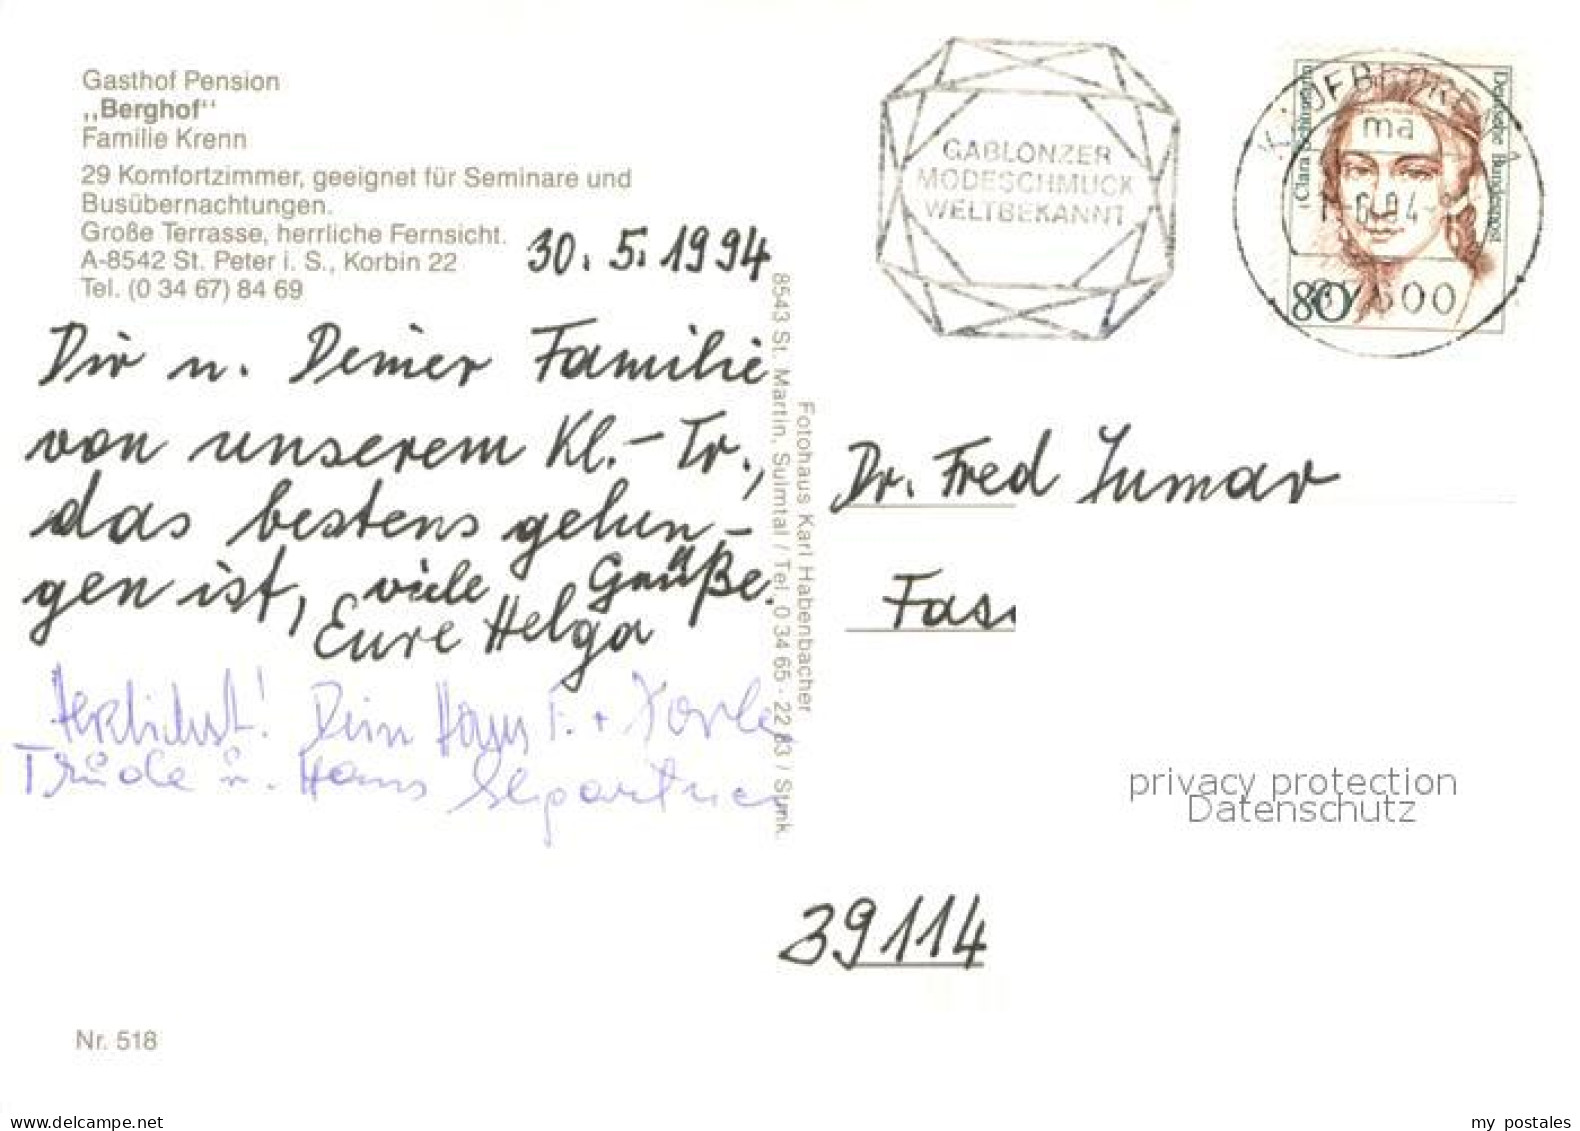 Gasthof Pension
„Berghof“
Familie Krenn
29 Komfortzimmer, geeignet für Seminare und
Busübernachtungen.
Große Terrasse, herrliche Fernsicht.
A-8542 St. Peter i. S., Korbin 22
Tel. (0 34 67) 84 69
30. 5. 1994
Dir u. Deiner Familie
von unserem Kl.-Tr.,
das bestens gelun-
gen ist, viele Grüße.
Eure Helga
Herzlichst! Dein Hans F. +
Trude u. Hans
Nr. 518
Fotohaus Karl Habenbacher
8543 St. Martin, Sulmtal / Tel. 0 34 65 - 22 83 / Stmk.
GABLONZER
MODESCHMUCK
WELTBEKANNT
Clara Schumann
Deutsche Bundespost
80
KAUFBEUREN
ma
87600
Dr. Fred Jumar
Fas
39114
privacy protection
Datenschutz
www.delcampe.net
my postales